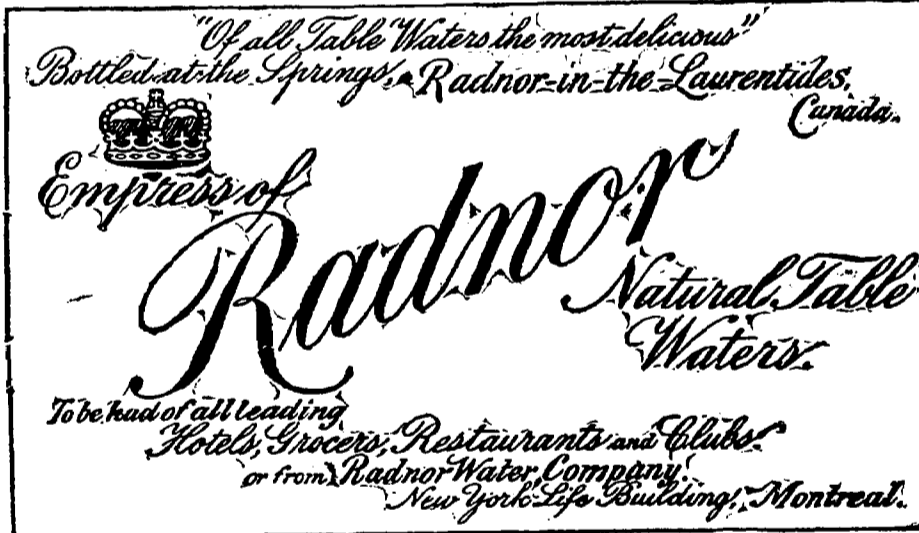 "Of all Table Waters the most delicious"
Bottled at the Springs, Radnor-in-the-Laurentides,
Canada.
Empress of
Radnor
Natural Table
Waters.
To be had of all leading
Hotels, Grocers, Restaurants and Clubs.
or from Radnor Water Company,
New York Life Building, Montreal.